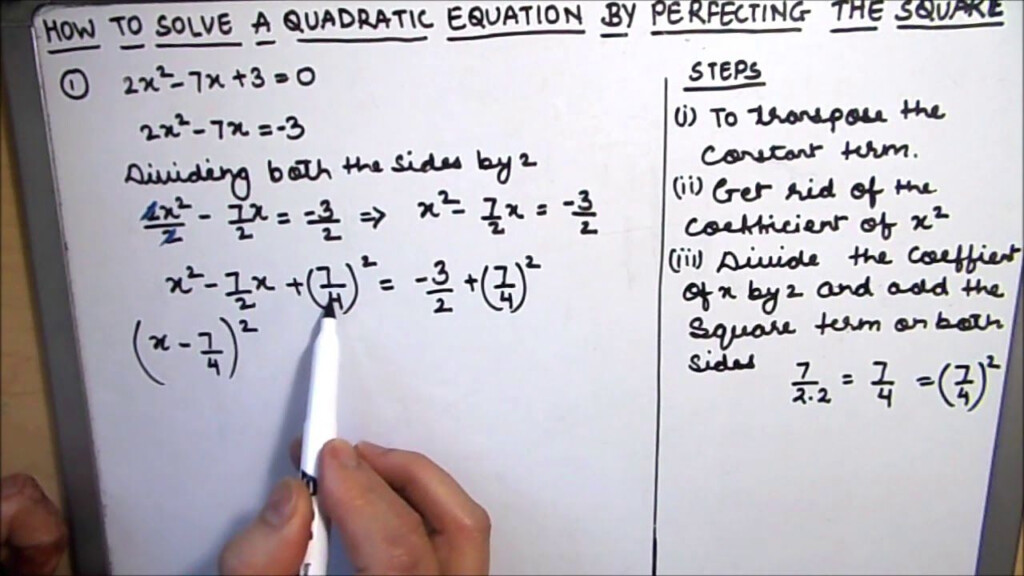 HOW TO SOLVE A QUADRATIC EQUATION BY PERFECTING THE SQUARE
① 2x² - 7x + 3 = 0
2x² - 7x = -3
Dividing both the sides by 2
2x²/2 - 7x/2 = -3/2 ⇒ x² - 7/2 x = -3/2
x² - 7/2 x + (7/4)² = -3/2 + (7/4)²
(x - 7/4)²
STEPS
(i) To transpose the
constant term.
(ii) Get rid of the
coefficient of x²
(iii) Divide the coeffient
of x by 2 and add the
square term on both
sides
7/2·2 = 7/4 = (7/4)²